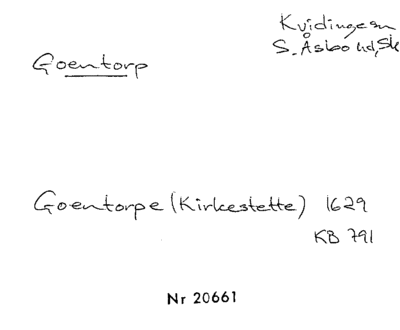 Kvidinge sn
S. Åsbo hd, Sk
Goentorp
Goentorpe (Kirkestette) 1629
KB 791
Nr 20661